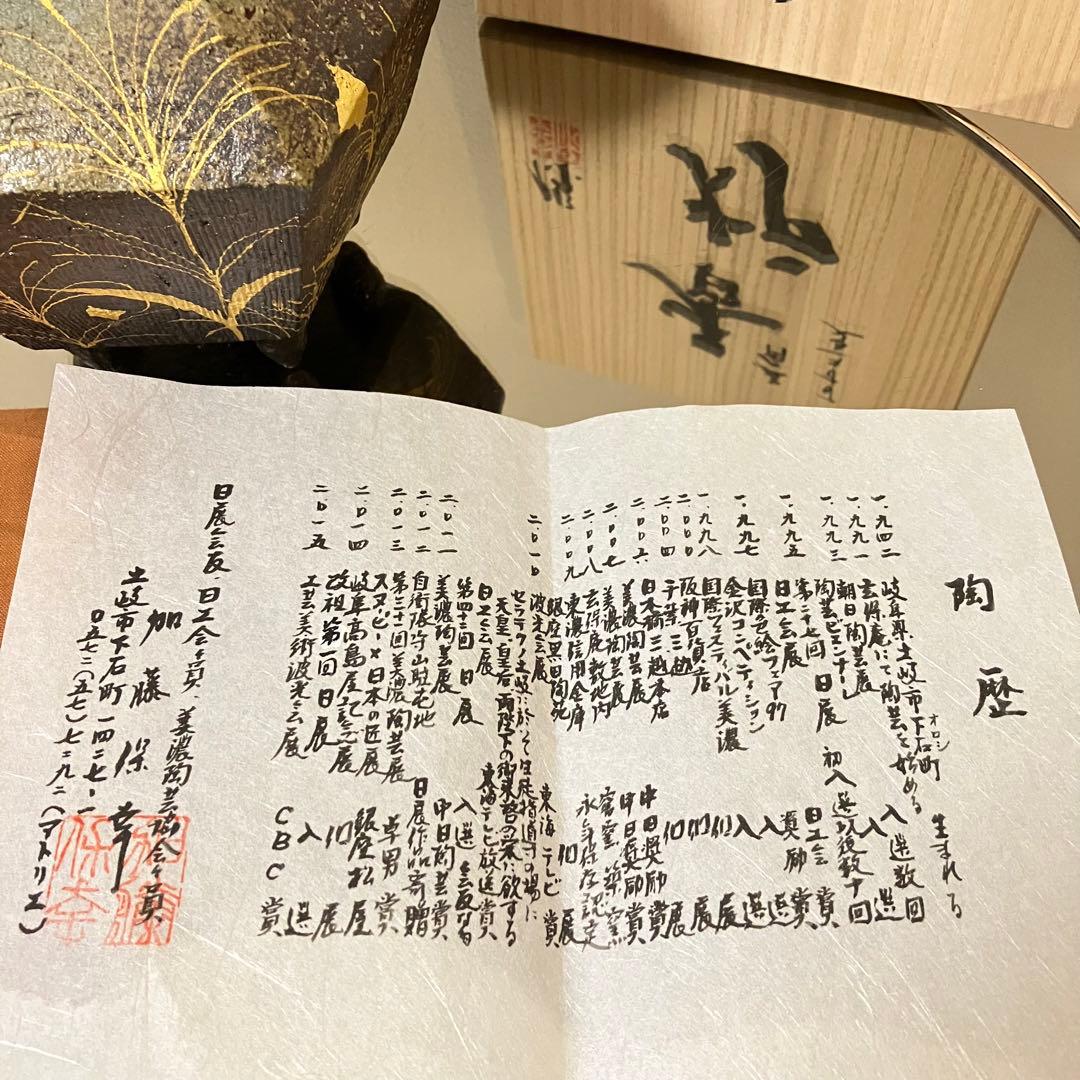 陶歴
一九四二 岐阜県土岐市下石町 生まれる
オロシ
一九九一 玄保庵にて陶芸を始める
朝日陶芸展 入選数回
一九九三 陶芸ビエンナーレ 入選
第二十七回 日展 初入選以後数十回
一九九五 日工会展 日工会奨励賞
一九九七 国際色絵フェア97 入選
金沢コンペティション 入選
一九九八 国際フェスティバル美濃 入選
二〇〇〇 阪神百貨店 個展
二〇〇四 千葉三越 個展
二〇〇六 日本橋三越本店 個展
二〇〇七 美濃陶芸展 中日奨励賞
美濃陶芸展 中日奨励賞
二〇〇八 玄保庵敷地内 窖窯築窯
二〇〇九 東濃信用金庫 永年保存認定
銀座黒田陶苑 個展
二〇一〇 波光会展 東海テレビ賞
セラテクノ土岐に於て生徒指導の場に
天皇・皇后両陛下の御来啓の栄に欲する
日工会展 東海テレビ放送賞
二〇一一 第四十三回 日展 入選 会友なる
美濃陶芸展 中日陶芸賞
二〇一二 自衛隊守山駐屯地 日展作品寄贈
二〇一三 第三十一回美濃陶芸展 卓男賞
スヌーピー×日本の匠展 銀座松屋
二〇一四 岐阜高島屋 個展
改組第一回日展 入選
二〇一五 工芸美術波光会展 CBC賞
日展会友・日工会会員・美濃陶芸協会会員
加藤保幸
土岐市下石町一四二七-一
〇五七二(五七)七二九二(アトリエ)
加藤保幸